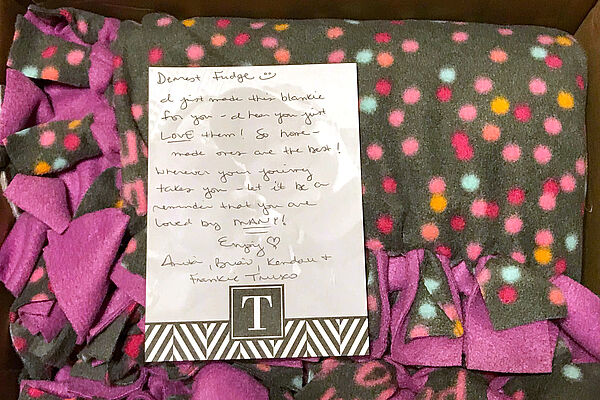 Dearest Fudge
I just made this blankie
for you - I hear you just
LOVE them! So home-
made ones are the best!
Wherever your journey
takes you - let it be a
reminder that you are
loved by MANY!
Enjoy ♡
Brian, Kendau +
Frankie Truxo
T